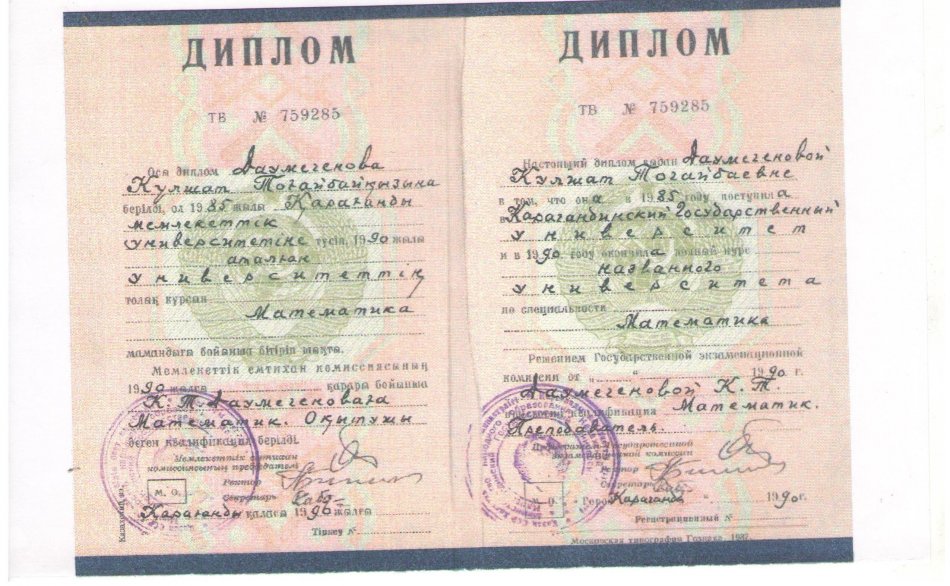 ДИПЛОМ
ТВ № 759285
Осы диплом Даумегенова
Кулшат Тоғайбайқызына
берілді, ол 1985 жылы Қарағанды
мемлекеттік
университетіне түсіп, 1990 жылы
аталған
университеттің
толық курсын
Математика
мамандығы бойынша бітіріп шықты.
Мемлекеттік емтихан комиссиясының
1990 жылғы қарары бойынша
К. Т. Даумегеноваға
Математик. Оқытушы
деген квалификация берілді.
Мемлекеттік емтихан
комиссиясының председателі
Ректор
Секретарь
М. О.
Қарағанды қаласы 1990 жылғы
Тіркеу №
ДИПЛОМ
ТВ № 759285
Настоящий диплом выдан Даумегеновой
Кулшат Тогайбаевне
в том, что она в 1985 году поступила
в Карагандинский Государственный
университет
и в 1990 году окончила полный курс
названного
университета
по специальности
Математика
Решением Государственной экзаменационной
комиссии от „ “ 1990 г.
Даумегеновой К. Т.
присвоена квалификация Математик.
Преподаватель.
Председатель Государственной
экзаменационной комиссии
Ректор
Секретарь
М. О.
Город Караганда 1990 г.
Регистрационный №
Московская типография Гознака. 1987.